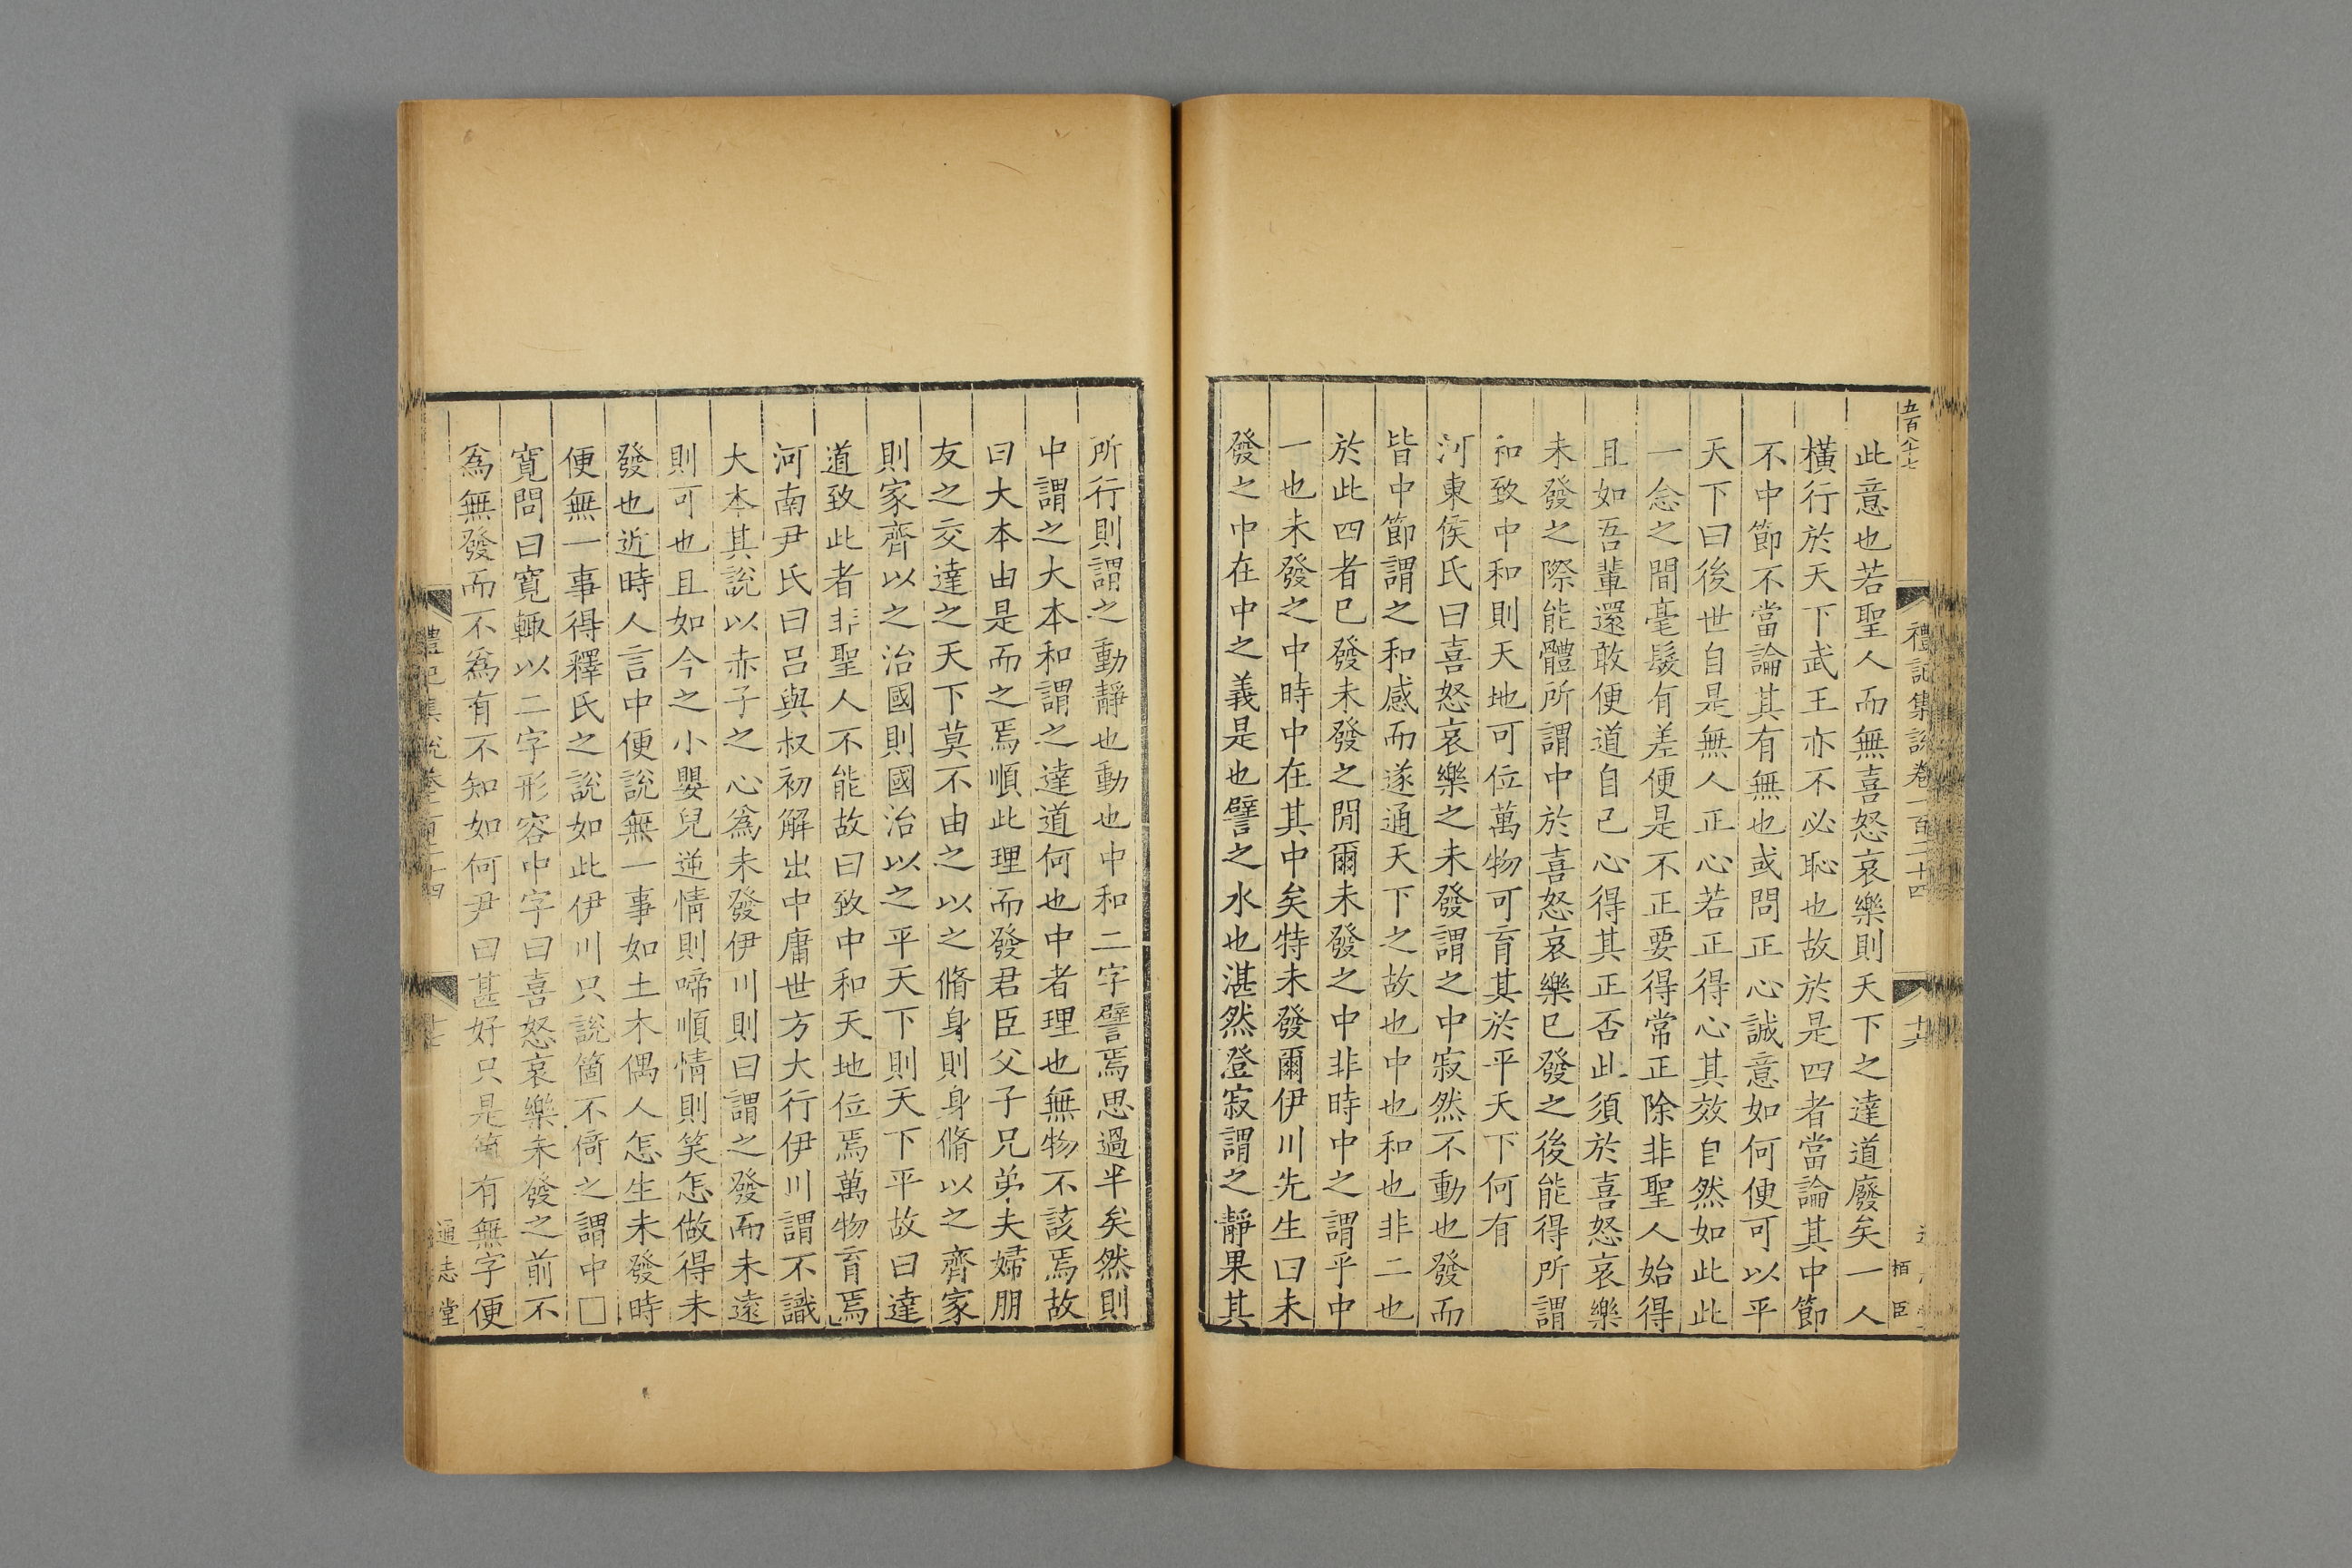 五百八十七
禮記集說卷一百二十四
十六
栢臣
此意也若聖人而無喜怒哀樂則天下之達道廢矣一人
橫行於天下武王亦不必恥也故於是四者當論其中節
不中節不當論其有無也或問正心誠意如何便可以平
天下曰後世自是無人正心若正得心其效自然如此此
一念之間毫髮有差便是不正要得常正除非聖人始得
且如吾輩還敢便道自己心得其正否此須於喜怒哀樂
未發之際能體所謂中於喜怒哀樂已發之後能得所謂
和致中和則天地可位萬物可育其於平天下何有
河東侯氏曰喜怒哀樂之未發謂之中寂然不動也發而
皆中節謂之和感而遂通天下之故也中也和也非二也
於此四者已發未發之閒爾未發之中非時中之謂乎中
一也未發之中時中在其中矣特未發爾伊川先生曰未
發之中在中之義是也譬之水也湛然澄寂謂之靜果其
所行則謂之動靜也動也中和二字譬焉思過半矣然則
中謂之大本和謂之達道何也中者理也無物不該焉故
曰大本由是而之焉順此理而發君臣父子兄弟夫婦朋
友之交達之天下莫不由之以之脩身則身脩以之齊家
則家齊以之治國則國治以之平天下則天下平故曰達
道致此者非聖人不能故曰致中和天地位焉萬物育焉
河南尹氏曰呂與叔初解出中庸世方大行伊川謂不識
大本其說以赤子之心為未發伊川則曰謂之發而未遠
則可也且如今之小嬰兒逆情則啼順情則笑怎做得未
發也近時人言中便說無一事如土木偶人怎生未發時
便無一事得釋氏之說如此伊川只說箇不倚之謂中□
寬問曰寬輙以二字形容中字曰喜怒哀樂未發之前不
為無發而不為有不知如何尹曰甚好只是箇有無字便
禮記集說卷一百二十四
十七
通志堂